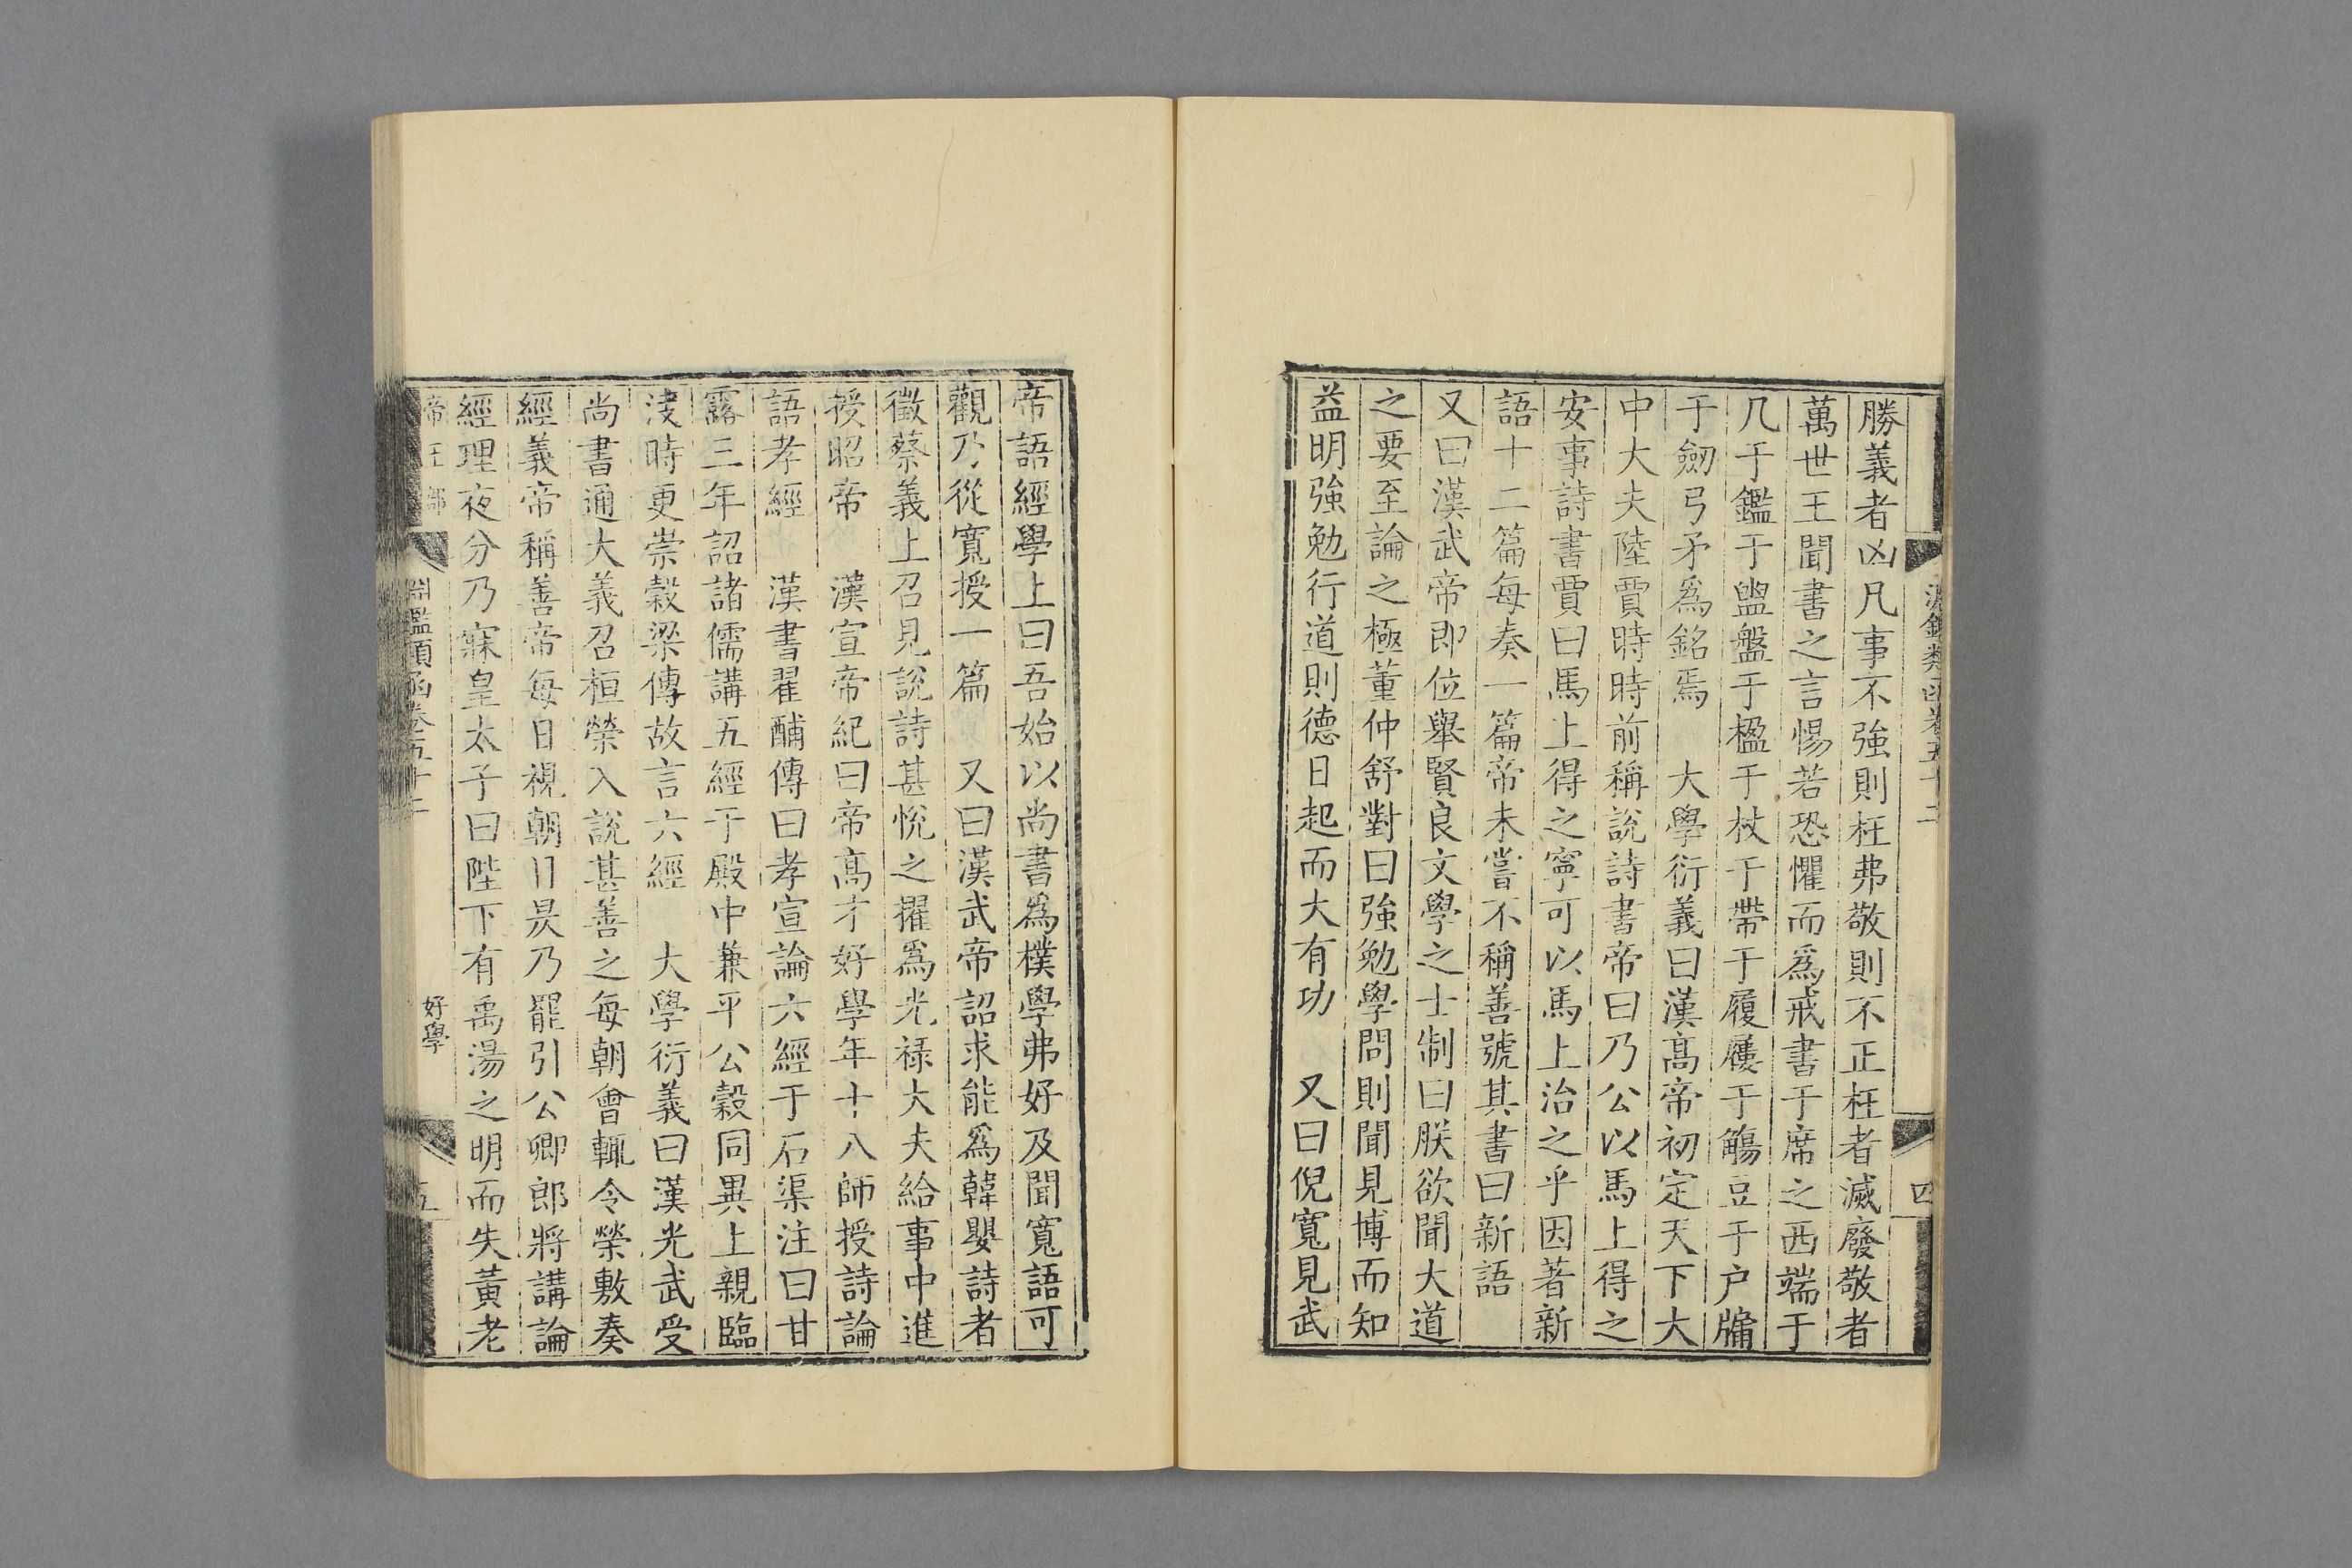 勝義者凶凡事不強則枉弗敬則不正枉者滅廢敬者
萬世王聞書之言惕若恐懼而爲戒書于席之西端于
几于鑑于盥盤于楹于杖于帶于履屨于觴豆于户牖
于劒弓矛爲銘焉 大學衍義曰漢髙帝初定天下大
中大夫陸賈時時前稱說詩書帝曰乃公以馬上得之
安事詩書賈曰馬上得之寧可以馬上治之乎因著新
語十二篇每奏一篇帝未嘗不稱善號其書曰新語
又曰漢武帝即位舉賢良文學之士制曰朕欲聞大道
之要至論之極董仲舒對曰強勉學問則聞見博而知
益明強勉行道則德日起而大有功 又曰倪寬見武
帝語經學上曰吾始以尚書爲樸學弗好及聞寬語可
觀乃從寬授一篇 又曰漢武帝詔求能爲韓嬰詩者
徵蔡義上召見說詩甚悅之擢爲光禄大夫給事中進
授昭帝 漢宣帝紀曰帝髙才好學年十八師授詩論
語孝經 漢書翟酺傳曰孝宣論六經于石渠注曰甘
露三年詔諸儒講五經于殿中兼平公穀同異上親臨
決時更崇穀梁傳故言六經 大學衍義曰漢光武受
尚書通大義召桓榮入說甚善之每朝會輒令榮敷奏
經義帝稱善帝每日視朝日昃乃罷引公卿郎將講論
經理夜分乃寐皇太子曰陛下有禹湯之明而失黃老
帝王部 淵鑑類函卷五十二 好學 五